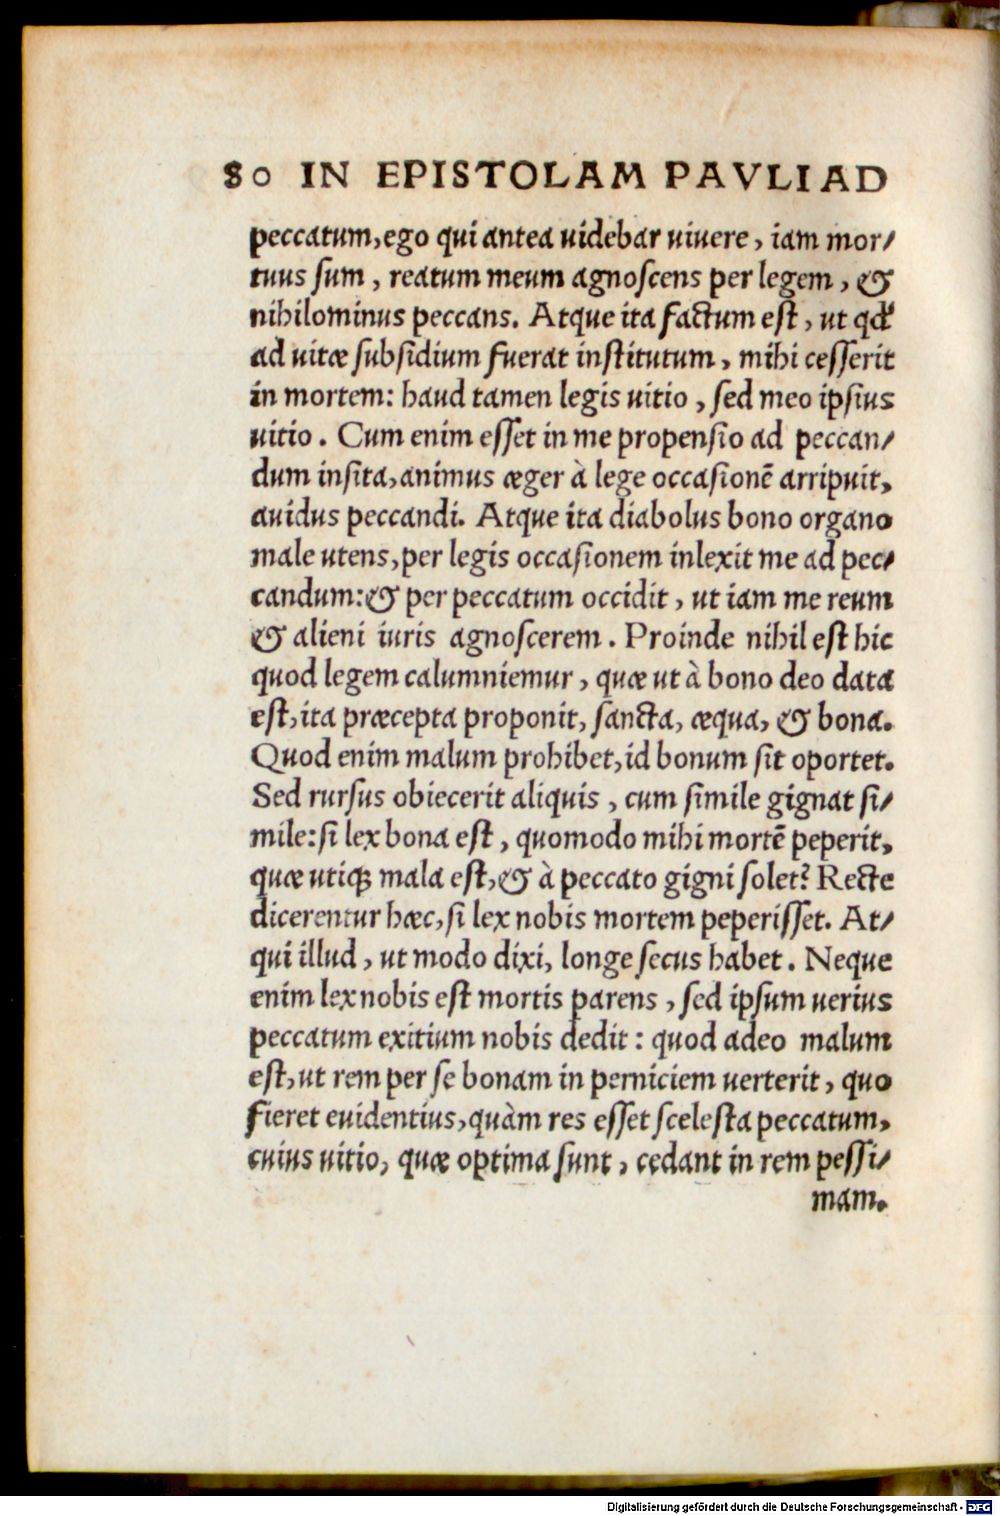 80 IN EPISTOLAM PAVLI AD
peccatum, ego qui antea uidebar uiuere, iam mor/
tuus sum, reatum meum agnoscens per legem, &
nihilominus peccans. Atque ita factum est, ut qđ
ad uitæ subsidium fuerat institutum, mihi cesserit
in mortem: haud tamen legis uitio, sed meo ipsius
uitio. Cum enim esset in me propensio ad peccan/
dum insita, animus æger à lege occasionē arripuit,
auidus peccandi. Atque ita diabolus bono organo
male utens, per legis occasionem inlexit me ad pec/
candum: & per peccatum occidit, ut iam me reum
& alieni iuris agnoscerem. Proinde nihil est hic
quod legem calumniemur, quæ ut à bono deo data
est, ita præcepta proponit, sancta, æqua, & bona.
Quod enim malum prohibet, id bonum sit oportet.
Sed rursus obiecerit aliquis, cum simile gignat si/
mile: si lex bona est, quomodo mihi mortē peperit,
quæ utiqꝫ mala est, & à peccato gigni solet? Recte
dicerentur hæc, si lex nobis mortem peperisset. At/
qui illud, ut modo dixi, longe secus habet. Neque
enim lex nobis est mortis parens, sed ipsum uerius
peccatum exitium nobis dedit: quod adeo malum
est, ut rem per se bonam in perniciem uerterit, quo
fieret euidentius, quàm res esset scelesta peccatum,
cuius uitio, quæ optima sunt, cedant in rem pessi/
mam.
Digitalisierung gefördert durch die Deutsche Forschungsgemeinschaft - DFG